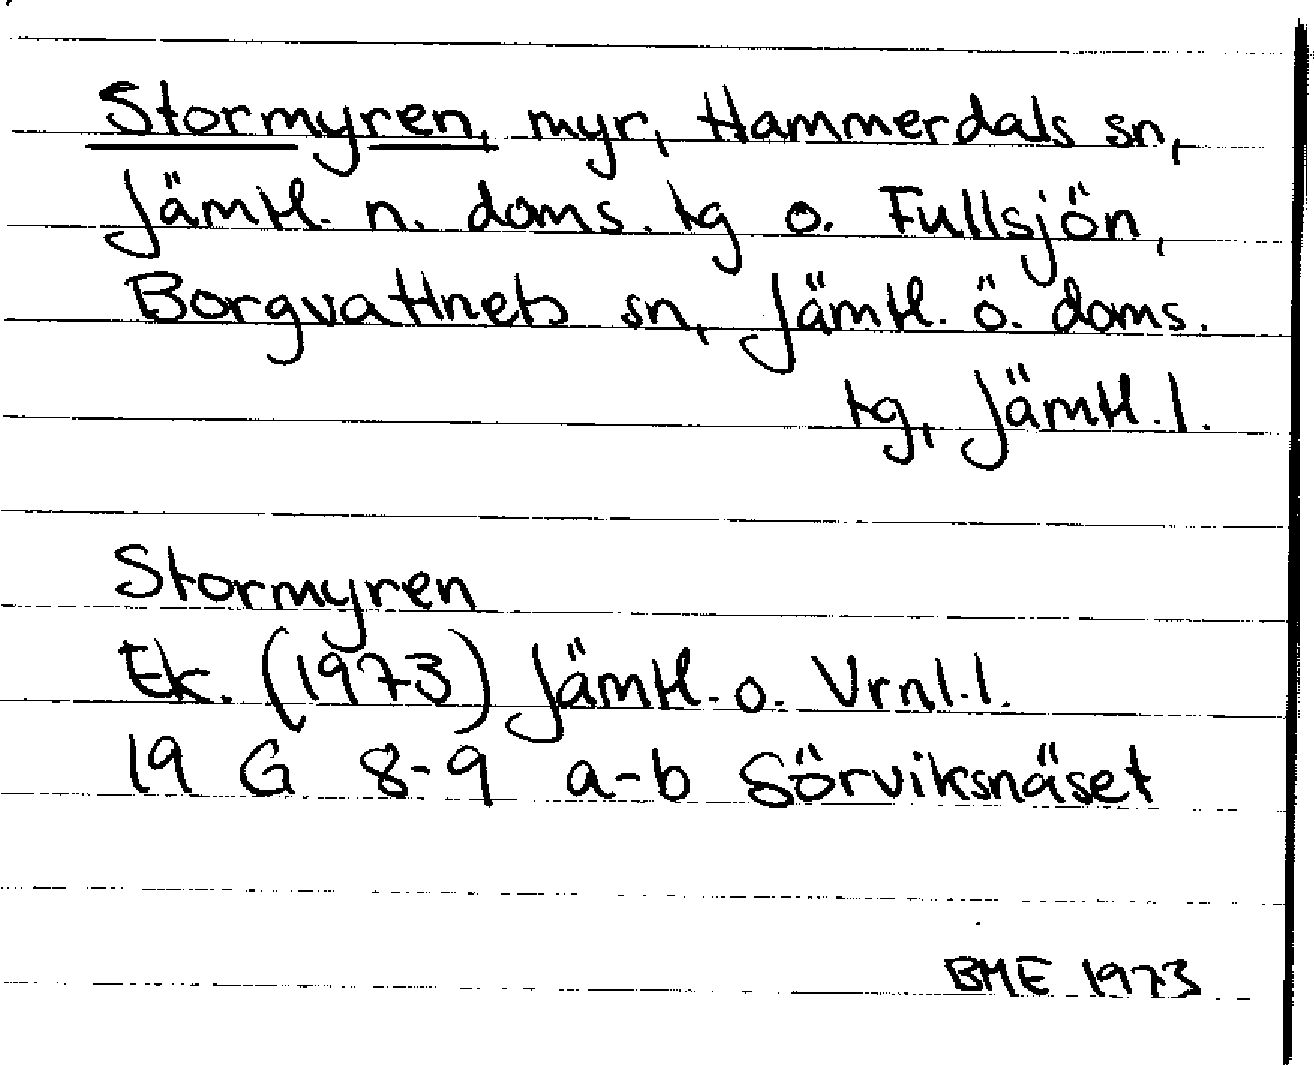 Stormyren, myr, Hammerdals sn,
Jämtl. n. doms. tg o. Fullsjön,
Borgvattnets sn, Jämtl. ö. doms.
tg, Jämtl. l.
Stormyren
Ek. (1973) Jämtl. o. Vrnl. l.
19 G 8-9 a-b Sörviksnäset
BME 1973